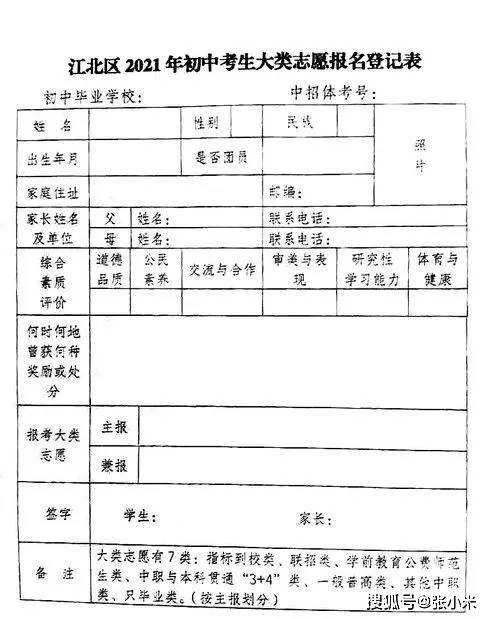 江北区 2021 年初中考生大类志愿报名登记表
初中毕业学校： 中招体考号：
姓 名 性别 民族 照片
出生年月 是否团员
家庭住址 邮编：
家长姓名及单位 父 姓名： 联系电话：
母 姓名： 联系电话：
综合素质评价 道德品质 公民素养 交流与合作 审美与表现 研究性学习能力 体育与健康
何时何地
曾获何种
奖励或处
分
报考大类
志愿
主报
兼报
签字 学生： 家长：
备 注
大类志愿有 7 类：指标到校类、联招类、学前教育公费师范
生类、中职与本科贯通“3+4”类、一般普高类、其他中职
类、只毕业类。（按主报划分）
搜狐号@张小米